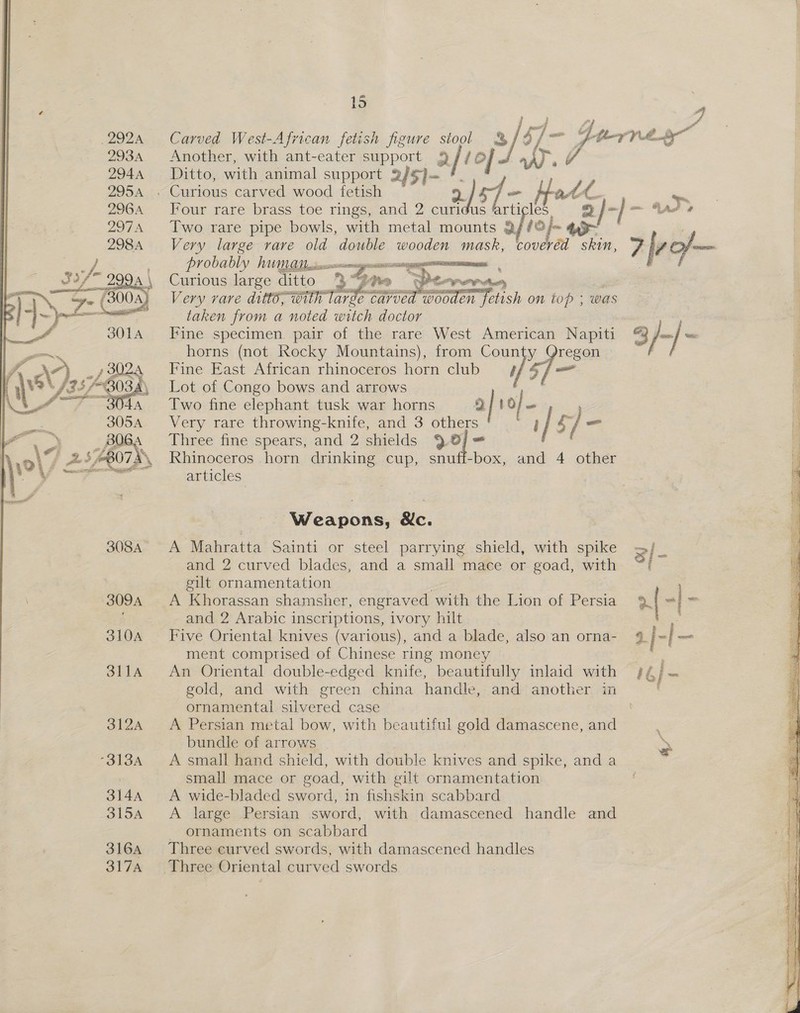 15
292A Carved West-African fetish figure stool 2/5/- Gurney
293A Another, with ant-eater support 2/10/
294A Ditto, with animal support 2/5/-
295A Curious carved wood fetish 2/5/- Hall
296A Four rare brass toe rings, and 2 curious articles 2/-/-
297A Two rare pipe bowls, with metal mounts 2/10/-
298A Very large rare old double wooden mask, covered skin, 7/10/-
probably human
35/- 299A Curious large ditto
300A Very rare ditto, with large carved wooden fetish on top ; was
taken from a noted witch doctor
301A Fine specimen pair of the rare West American Napiti 3/-/-
horns (not Rocky Mountains), from County Oregon
302A Fine East African rhinoceros horn club 1/5/-
303A Lot of Congo bows and arrows
304A Two fine elephant tusk war horns 2/10/-
305A Very rare throwing-knife, and 3 others 1/5/-
306A Three fine spears, and 2 shields
307A Rhinoceros horn drinking cup, snuff-box, and 4 other
articles
Weapons, &c.
308A A Mahratta Sainti or steel parrying shield, with spike 3/-
and 2 curved blades, and a small mace or goad, with
gilt ornamentation
309A A Khorassan shamsher, engraved with the Lion of Persia 2/-/-
and 2 Arabic inscriptions, ivory hilt
310A Five Oriental knives (various), and a blade, also an orna- 2/-/-
ment comprised of Chinese ring money
311A An Oriental double-edged knife, beautifully inlaid with 16/-
gold, and with green china handle, and another in
ornamental silvered case
312A A Persian metal bow, with beautiful gold damascene, and
bundle of arrows
313A A small hand shield, with double knives and spike, and a
small mace or goad, with gilt ornamentation
314A A wide-bladed sword, in fishskin scabbard
315A A large Persian sword, with damascened handle and
ornaments on scabbard
316A Three curved swords, with damascened handles
317A Three Oriental curved swords